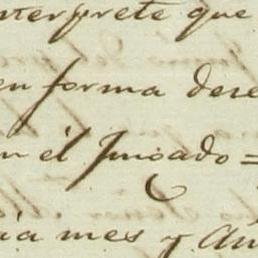 nterprete que
en forma dere
n él Juzgado =
ia mes y An